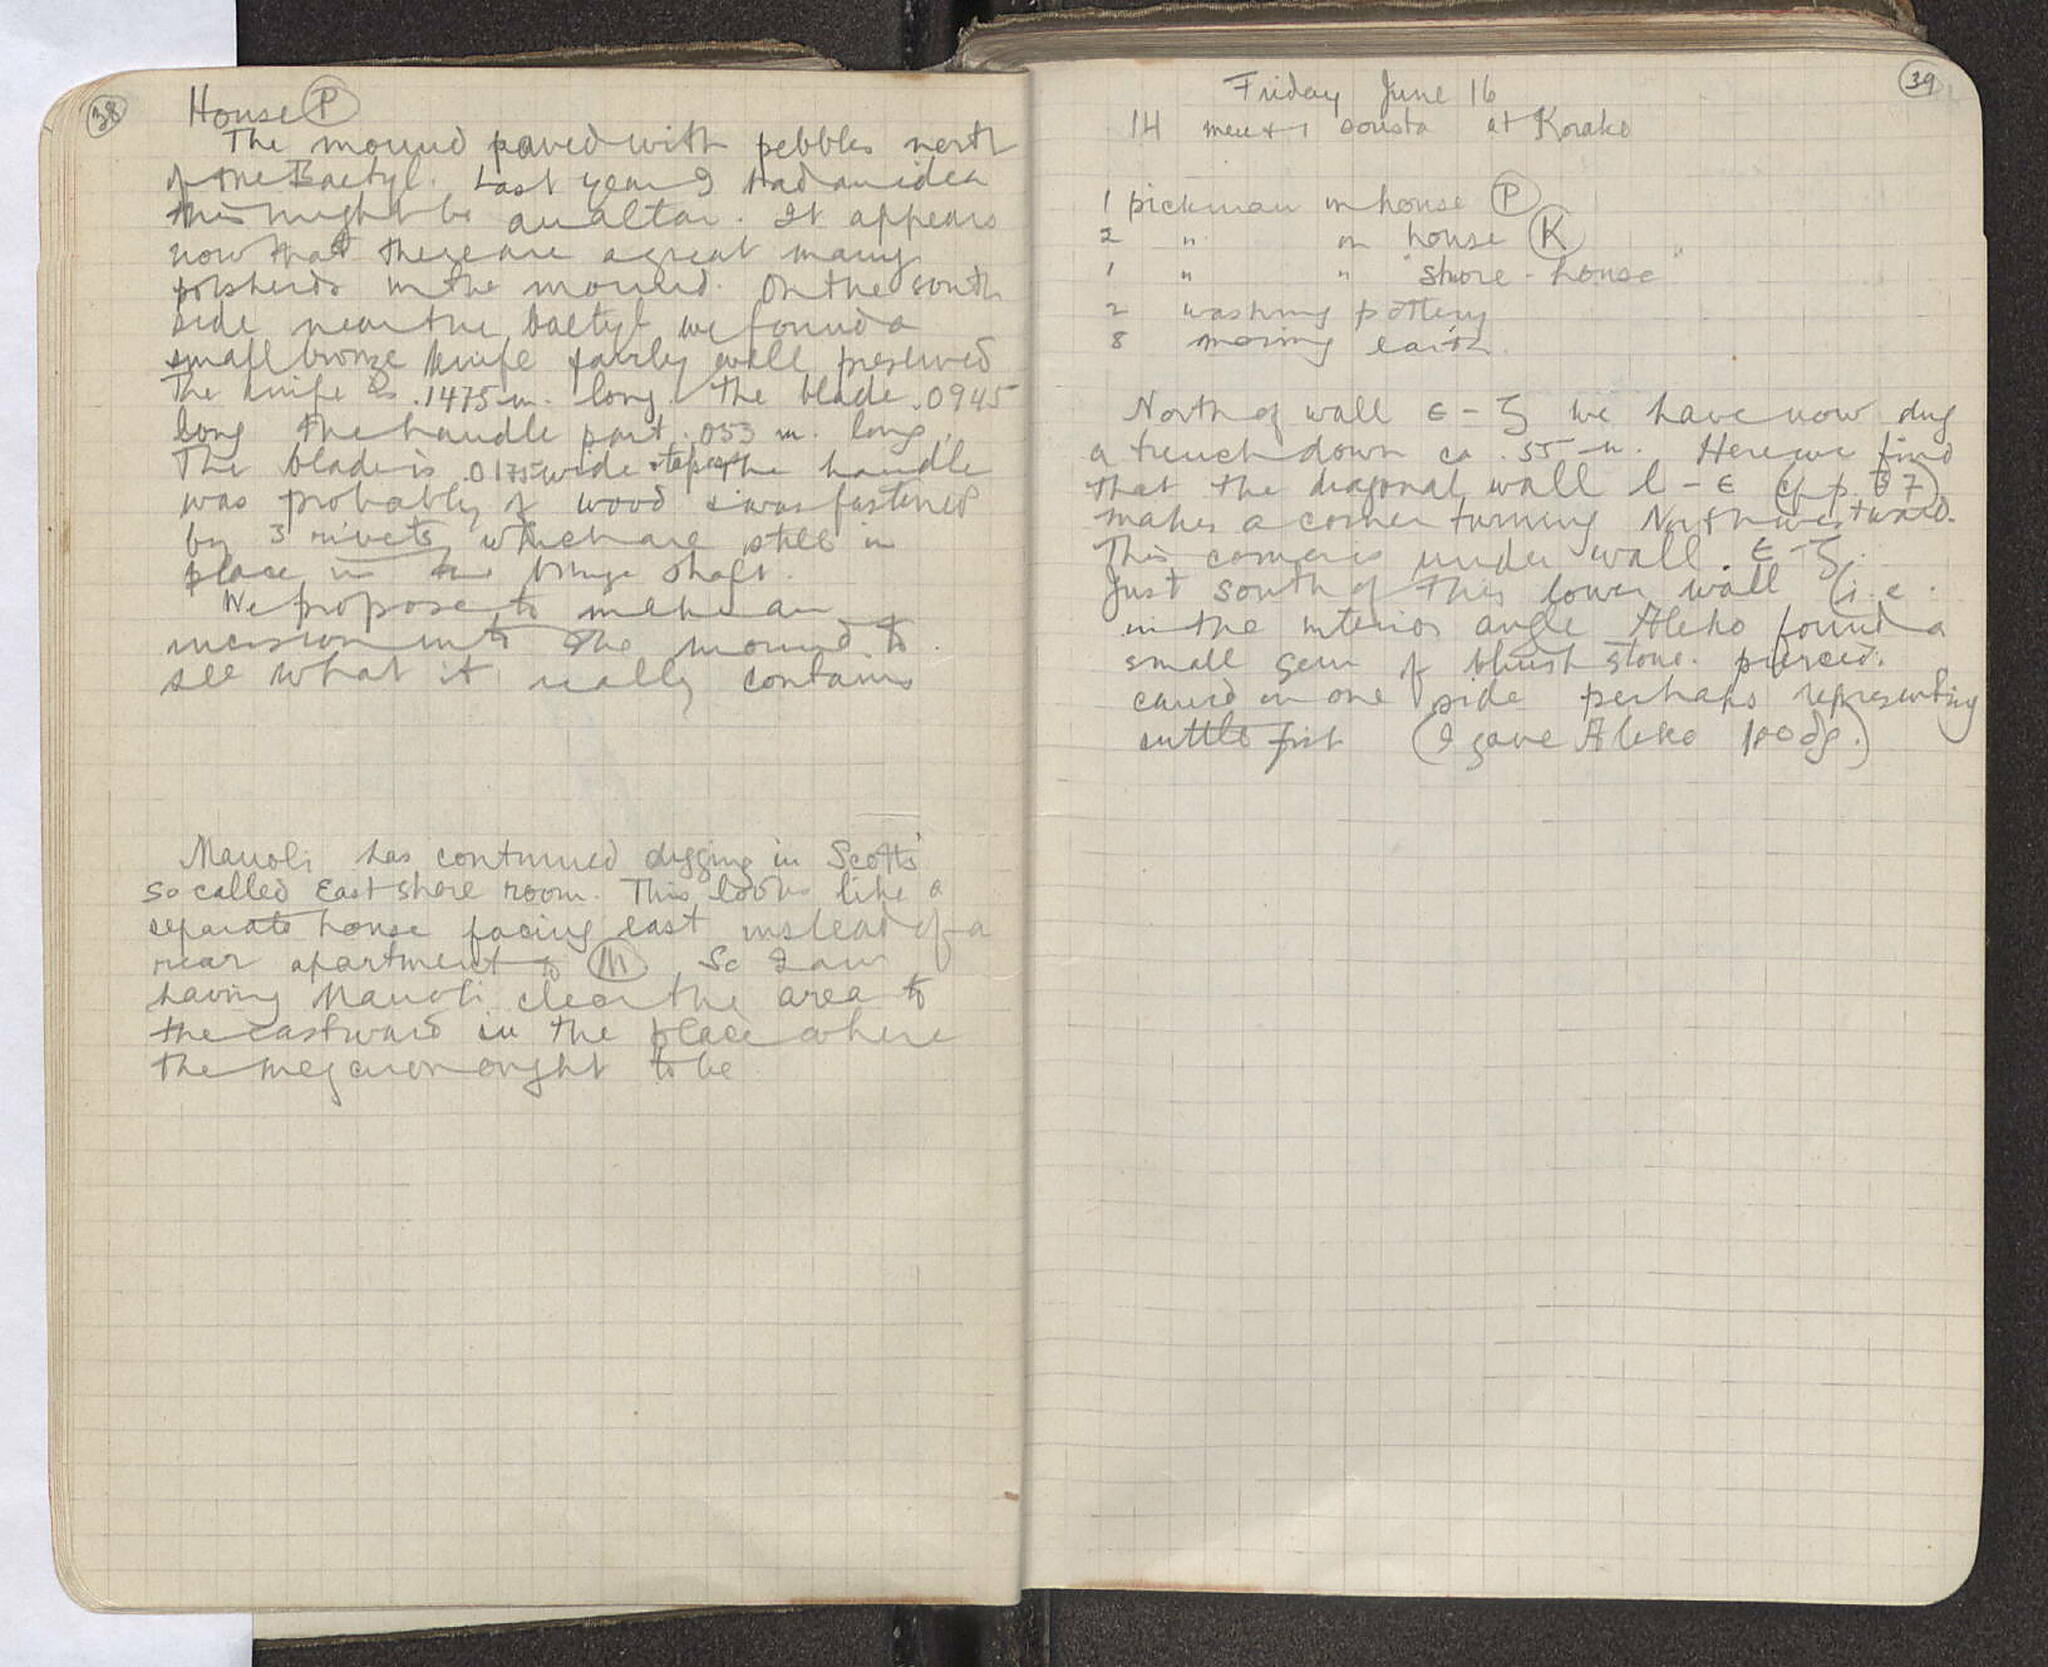 38
House P
The mound paved with pebbles north
of the Baetyl. Last year I had an idea
this might be an altar. It appears
now that there are a great many
potsherds in the mound. On the south
side near the baetyl we found a
small bronze knife fairly well preserved
The knife is .1475 m. long. The blade .0945
long the handle part .053 m. long.
The blade is .0175 wide the handle
was probably of wood & was fastened
by 3 rivets which are still in
place in the bronze shaft.
We propose to make an
incision into the mound to
see what it really contains
Manoli has continued digging in Scott's
so called East shore room. This looks like a
separate house facing east instead of a
rear apartment to M So I am
having Manoli clear the area to
the eastward in the place where
the megaron ought to be
39
Friday June 16
14 men & 1 sousta at Korako
1 pickman in house P
2 " in house K
1 " " "shore-house"
2 washing pottery
8 moving earth.
North of wall ε-ζ we have now dug
a trench down ca .55 m. Here we find
that the diagonal wall l-ε (cf p. 37)
makes a corner turning Northwestward.
This corner is under wall ε-ζ.
Just south of this lower wall (i.e.
in the interior angle Aleko found a
small gem of bluish stone. pierced.
carved on one side perhaps representing
cuttle fish (I gave Aleko 100 dr.)